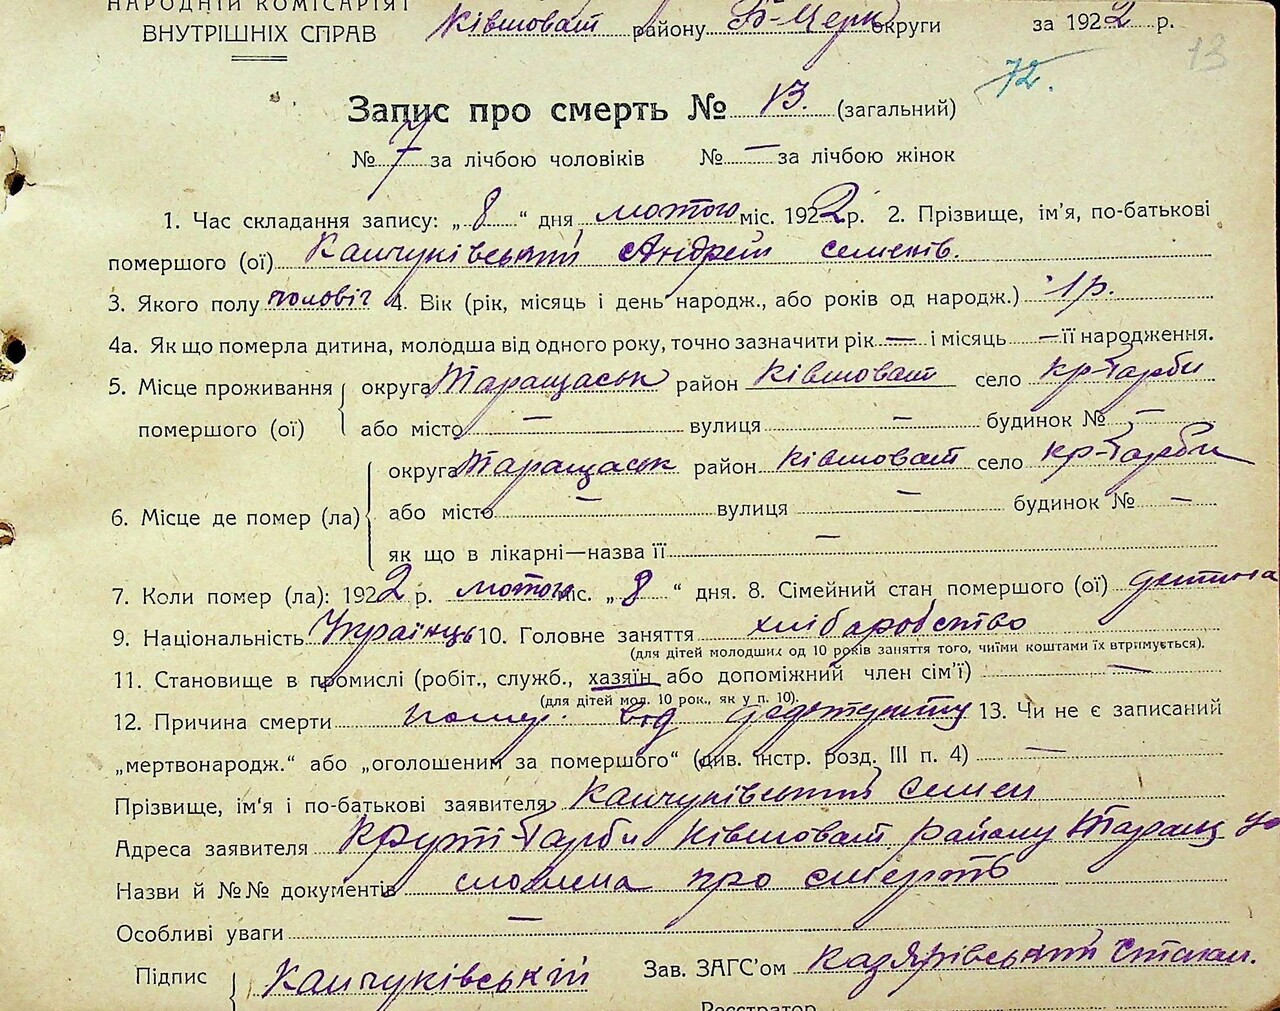 НАРОДНІЙ КОМІСАРІЯТ
ВНУТРІШНІХ СПРАВ
Ківшоват району Б-Церк округи за 1922 р.
13
72.
Запис про смерть № 13. (загальний)
№ 7 за лічбою чоловіків № — за лічбою жінок
1. Час складання запису: „ 8 “ дня лютого міс. 1922 р. 2. Прізвище, ім'я, по-батькові
помершого (ої) Канчуківський Андрей семенів.
3. Якого полу чоловіч 4. Вік (рік, місяць і день народж., або років од народж.) 1 р.
4а. Як що померла дитина, молодша від одного року, точно зазначити рік — і місяць — її народження.
5. Місце проживання округа Таращаськ район Ківшоват село Кр-Гарби
помершого (ої) або місто — вулиця — будинок № —
округа Таращаськ район Ківшоват село Кр-Гарби
6. Місце де помер (ла) або місто — вулиця — будинок № —
як що в лікарні—назва її —
7. Коли помер (ла): 1922 р. лютого міс. „ 8 “ дня. 8. Сімейний стан помершого (ої) дитина
9. Національність Українць 10. Головне заняття хліборобство
(для дітей молодших од 10 років заняття того, чиїми коштами їх втримується).
11. Становище в промислі (робіт., служб., хазяїн або допоміжний член сім'ї) —
(для дітей мол. 10 рок., як у п. 10).
12. Причина смерти помер. від 13. Чи не є записаний
„мертвонародж.“ або „оголошеним за помершого“ (див. інстр. розд. III п. 4) —
Прізвище, ім'я і по-батькові заявителя Канчуківський Семен
Адреса заявителя Круті-Гарби Ківшоват району Таращ
Назви й №№ документів словесна про смерть
Особливі уваги —
Підпис Канчуківській Зав. ЗАГС'ом Казярівський Степан.
Реєстратор